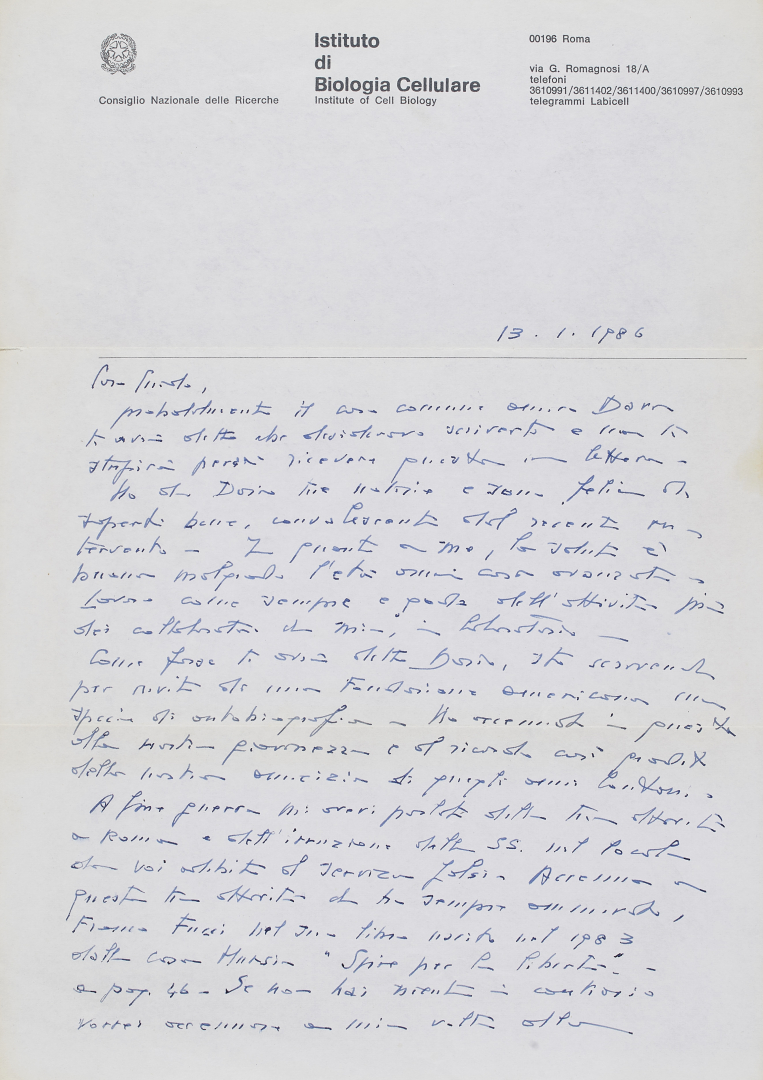 Istituto
di
Biologia Cellulare
Institute of Cell Biology
Consiglio Nazionale delle Ricerche
00196 Roma
via G. Romagnosi 18/A
telefoni
3610991/3611402/3611400/3610997/3610993
telegrammi Labicell
13. 1. 1986
Caro Guido,
probabilmente il caro comune amico Doro
ti avrà detto che desideravo scriverti e non ti
stupirà perciò ricevere questa mia lettera -
Ho da Doro tue notizie e sono felice di
saperti bene, convalescente dal recente in-
tervento - In quanto a me, la salute è
buona malgrado l'età ormai così avanzata -
Lavoro come sempre e godo dell'attività mia
dei collaboratori di mio, in laboratorio -
Come forse ti avrà detto Doro, sto scrivendo
per invito di una Fondazione americana una
specie di autobiografia - Ho accennato in questa
alla nostra giovinezza e al ricordo così
della nostra amicizia di quegli anni lontani -
A fine guerra mi avevi parlato della tua attività
a Roma e dell'irruzione delle SS. nel locale
da voi adibito al servizio falsi - Accenna a
questa tua attività che ho sempre ammirato,
Franco Fucci nel suo libro uscito nel 1983
dalla casa Mursia "Spie per la libertà" -
a pag. 46 - Se non hai niente in contrario
vorrei accennare a mia volta alla